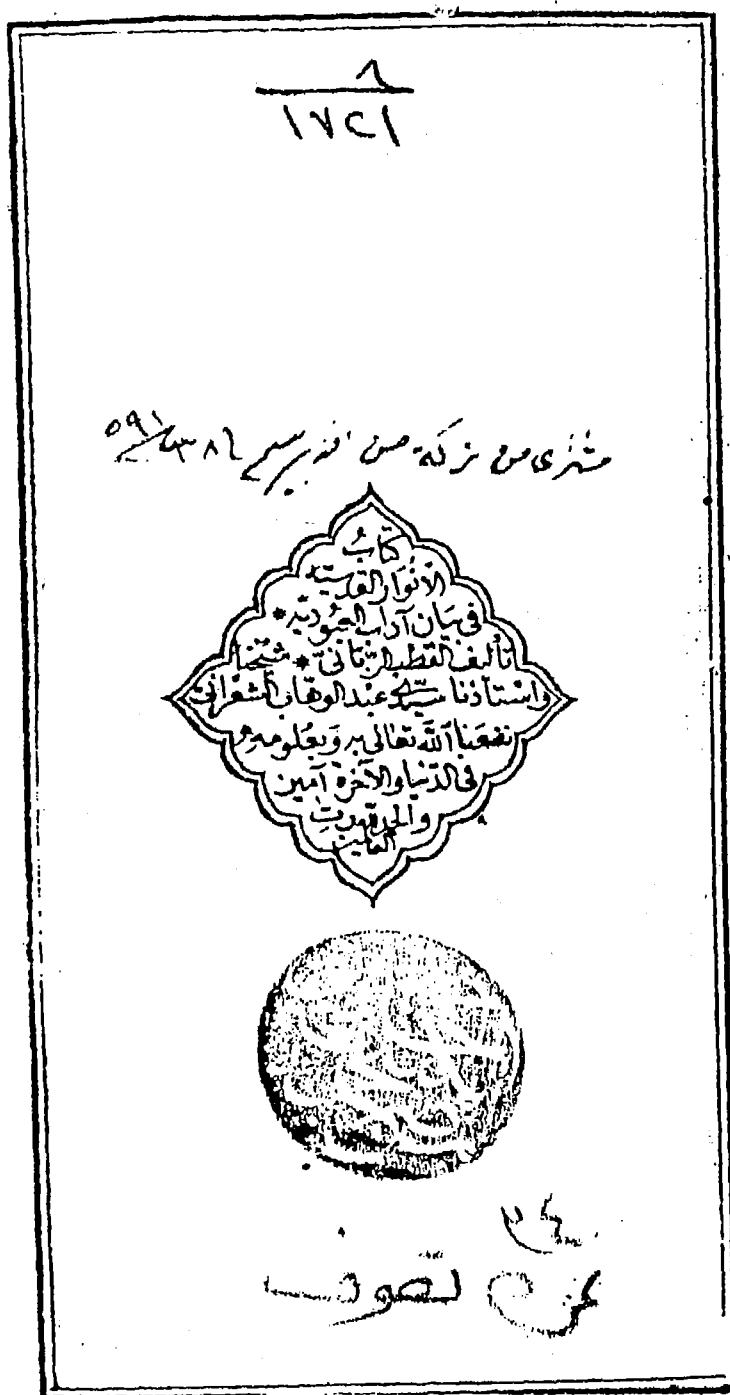 ٨
١٧٢١
مشترى من تركة حسن
كتاب
الأنوار القدسية
في بيان آداب العبودية *
تأليف القطب الرباني * شيخنا
وأستاذنا سيدي عبد الوهاب الشعراني
نفعنا الله تعالى به وبعلومه
في الدنيا والآخرة آمين
والحمد لله رب
العالمين
تصوف